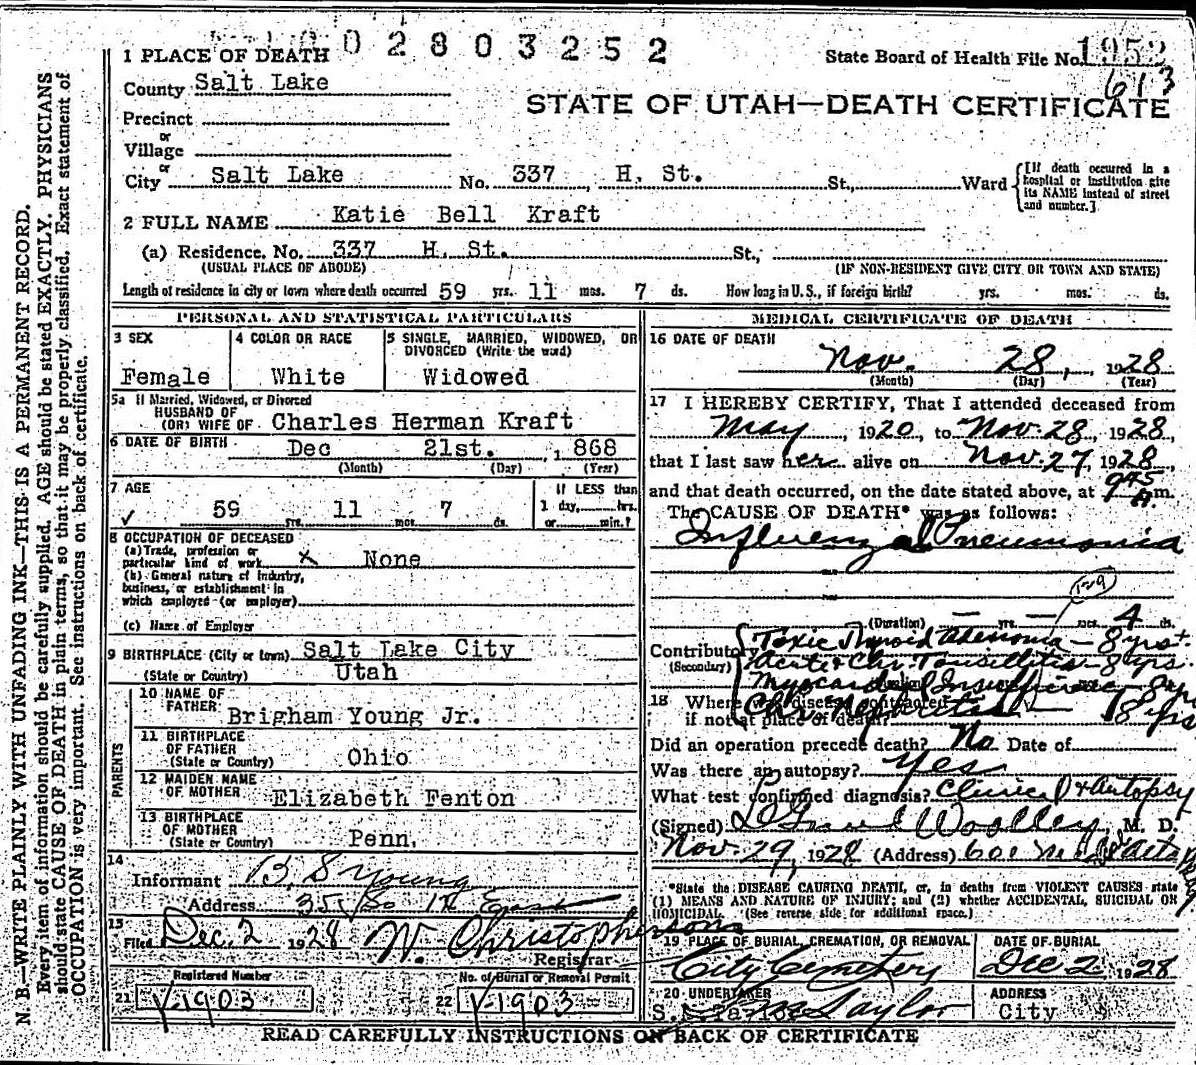 02803252
1 PLACE OF DEATH
State Board of Health File No. 1952
613
County Salt Lake
STATE OF UTAH—DEATH CERTIFICATE
Precinct
or
Village
or
City Salt Lake No. 337 H. St. St., Ward
[If death occurred in a hospital or institution give its NAME instead of street and number.]
2 FULL NAME Katie Bell Kraft
(a) Residence. No. 337 H. St. St.,
(USUAL PLACE OF ABODE) (IF NON-RESIDENT GIVE CITY OR TOWN AND STATE)
Length of residence in city or town where death occurred 59 yrs. 11 mos. 7 ds. How long in U.S., if foreign birth? yrs. mos. ds.
PERSONAL AND STATISTICAL PARTICULARS
3 SEX
Female
4 COLOR OR RACE
White
5 SINGLE, MARRIED, WIDOWED, OR DIVORCED (Write the word)
Widowed
5a If Married, Widowed, or Divorced
HUSBAND OF
(OR) WIFE OF Charles Herman Kraft
6 DATE OF BIRTH Dec 21st. , 1868
(Month) (Day) (Year)
7 AGE
59 yrs. 11 mos. 7 ds.
If LESS than
1 day, hrs.
or min.?
8 OCCUPATION OF DECEASED
(a) Trade, profession or
particular kind of work x None
(b) General nature of Industry,
business, or establishment in
which employed (or employer)
(c) Name of Employer
9 BIRTHPLACE (City or town) Salt Lake City
(State or Country) Utah
PARENTS
10 NAME OF
FATHER Brigham Young Jr.
11 BIRTHPLACE
OF FATHER
(State or Country) Ohio
12 MAIDEN NAME
OF MOTHER Elizabeth Fenton
13 BIRTHPLACE
OF MOTHER
(State or Country) Penn.
14
Informant B. S Young
Address 355 So 1 East
15
Filed Dec. 2 1928 W. Christopherson
Registrar
Registered Number
21 1903
No. of Burial or Removal Permit
22 1903
MEDICAL CERTIFICATE OF DEATH
16 DATE OF DEATH
Nov. 28, 1928
(Month) (Day) (Year)
17 I HEREBY CERTIFY, That I attended deceased from
May, 1920, to Nov. 28, 1928,
that I last saw her alive on Nov. 27, 1928,
and that death occurred, on the date stated above, at 9 45 A. m.
The CAUSE OF DEATH* was as follows:
Influenzal Pneumonia
129
(Duration) yrs. mos. 4 ds.
Contributory Toxic Thyroid Adenoma — 8 yrs +
(Secondary) Acute & Chr. Tonsillitis — 8 yrs
Myocardial Insufficiency 8 yrs
Chr. Nephritis — 8 yrs
18 Where was disease contracted
if not at place of death?
Did an operation precede death? No Date of
Was there an autopsy? Yes
What test confirmed diagnosis? Clinical & Autopsy
(Signed) Woolley, M. D.
Nov. 29, 1928 (Address)
*State the DISEASE CAUSING DEATH, or, in deaths from VIOLENT CAUSES state
(1) MEANS AND NATURE OF INJURY; and (2) whether ACCIDENTAL, SUICIDAL OR
HOMICIDAL. (See reverse side for additional space.)
19 PLACE OF BURIAL, CREMATION, OR REMOVAL
City Cemetery
DATE OF BURIAL
Dec 2 1928
20 UNDERTAKER
Taylor
ADDRESS
City
READ CAREFULLY INSTRUCTIONS ON BACK OF CERTIFICATE
N. B.—WRITE PLAINLY WITH UNFADING INK—THIS IS A PERMANENT RECORD.
Every item of information should be carefully supplied. AGE should be stated EXACTLY. PHYSICIANS
should state CAUSE OF DEATH in plain terms, so that it may be properly classified. Exact statement of
OCCUPATION is very important. See instructions on back of certificate.